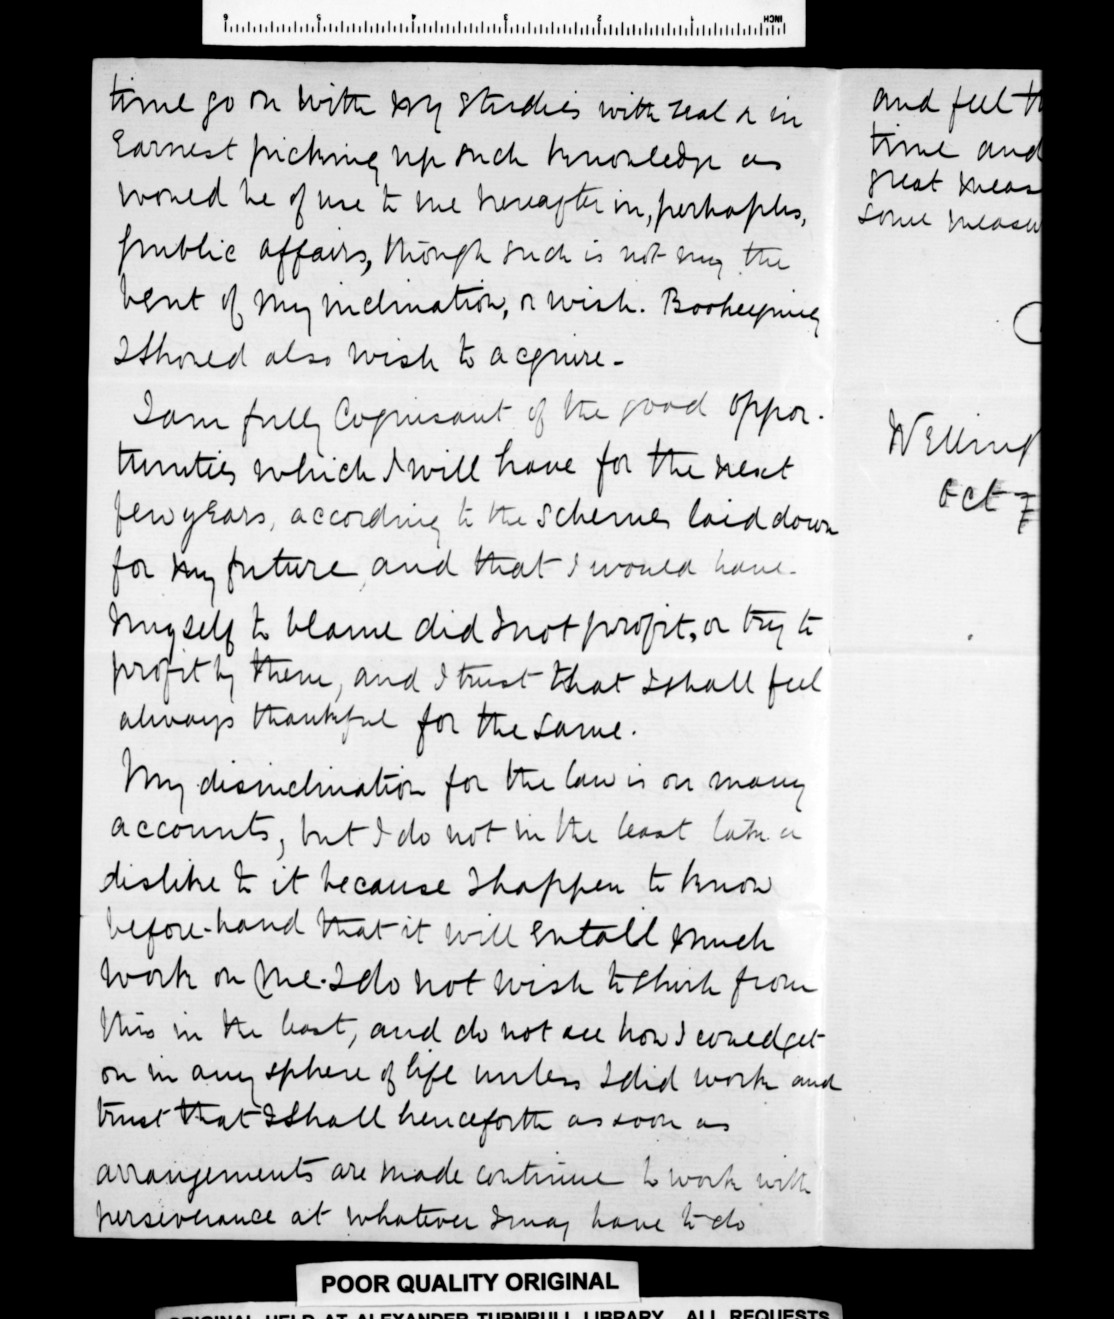 time go on with my studies with zeal & in
Earnest picking up such knowledge as
would be of use to me hereafter in, perhaphs,
public affairs, though such is not my the
bent of my inclination, or wish. Bookeeping
I should also wish to acquire -
I am fully Cognisant of the good oppor-
tunities which I will have for the next
few years, according to the Schemes laid down
for my future, and that I would have
myself to blame did I not profit, or try to
profit by them, and I trust that I shall feel
always thankful for the same.
My disinclination for the law is on many
accounts, but I do not in the least take a
dislike to it because I happen to know
before-hand that it will Entail much
work on me. I do not wish to shirk from
this in the least, and do not see how I could get
on in any sphere of life unless I did work and
trust that I shall henceforth as soon as
arrangements are made continue to work with
perseverance at whatever I may have to do
and feel th
time and
great meas
some measu
Welling
Oct 7
INCH
POOR QUALITY ORIGINAL
ORIGINAL HELD AT ALEXANDER TURNBULL LIBRARY. ALL REQUESTS